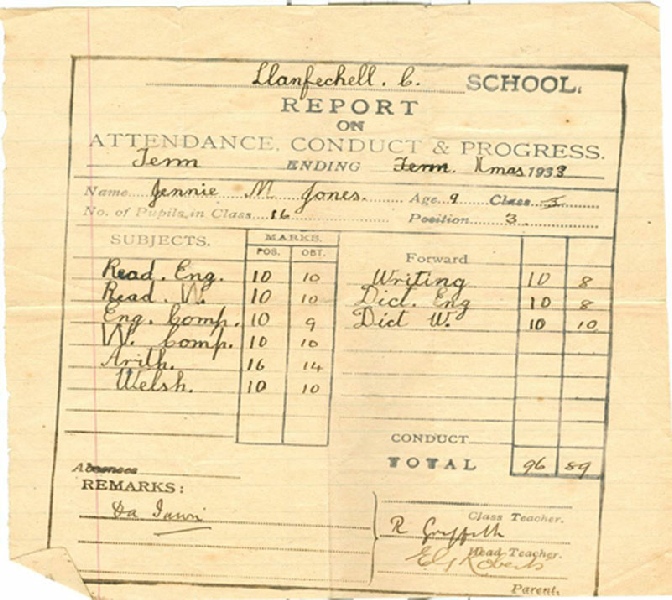 Llanfechell. C. SCHOOL.
REPORT
ON
ATTENDANCE, CONDUCT & PROGRESS.
Term ENDING Term. Xmas 1938
Name Jennie M Jones. Age 9 Class 3
No. of Pupils in Class 16 Position 3
SUBJECTS. MARKS.
POS. OBT.
Read. Eng. 10 10
Read. W. 10 10
Eng. Comp. 10 9
W. Comp. 10 10
Arith. 16 14
Welsh. 10 10
Forward
Writing 10 8
Dict. Eng 10 8
Dict W. 10 10
CONDUCT
TOTAL 96 89
Absences
REMARKS:
Da Iawn
Class Teacher.
R Griffith
Head Teacher.
E G Roberts
Parent.